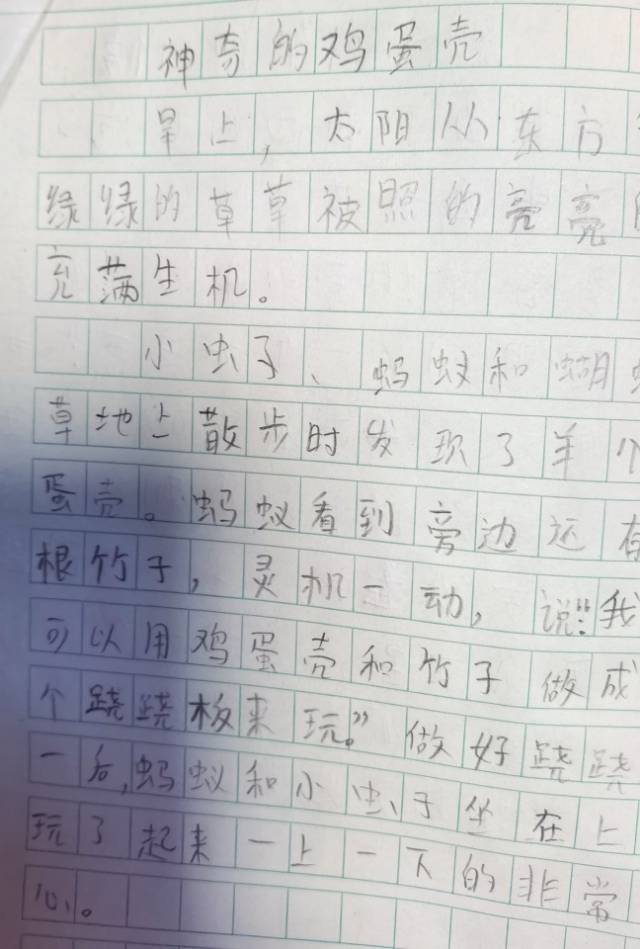 神奇的鸡蛋壳
早上，太阳从东方
绿绿的草草被照的亮亮
充满生机。
小虫子、蚂蚁和蝴
草地上散步时发现了半个
蛋壳。蚂蚁看到旁边还有
根竹子，灵机一动，说:“我
可以用鸡蛋壳和竹子做成
个跷跷板来玩。”做好跷跷
一后,蚂蚁和小虫子坐在上
玩了起来一上一下的非常
心。